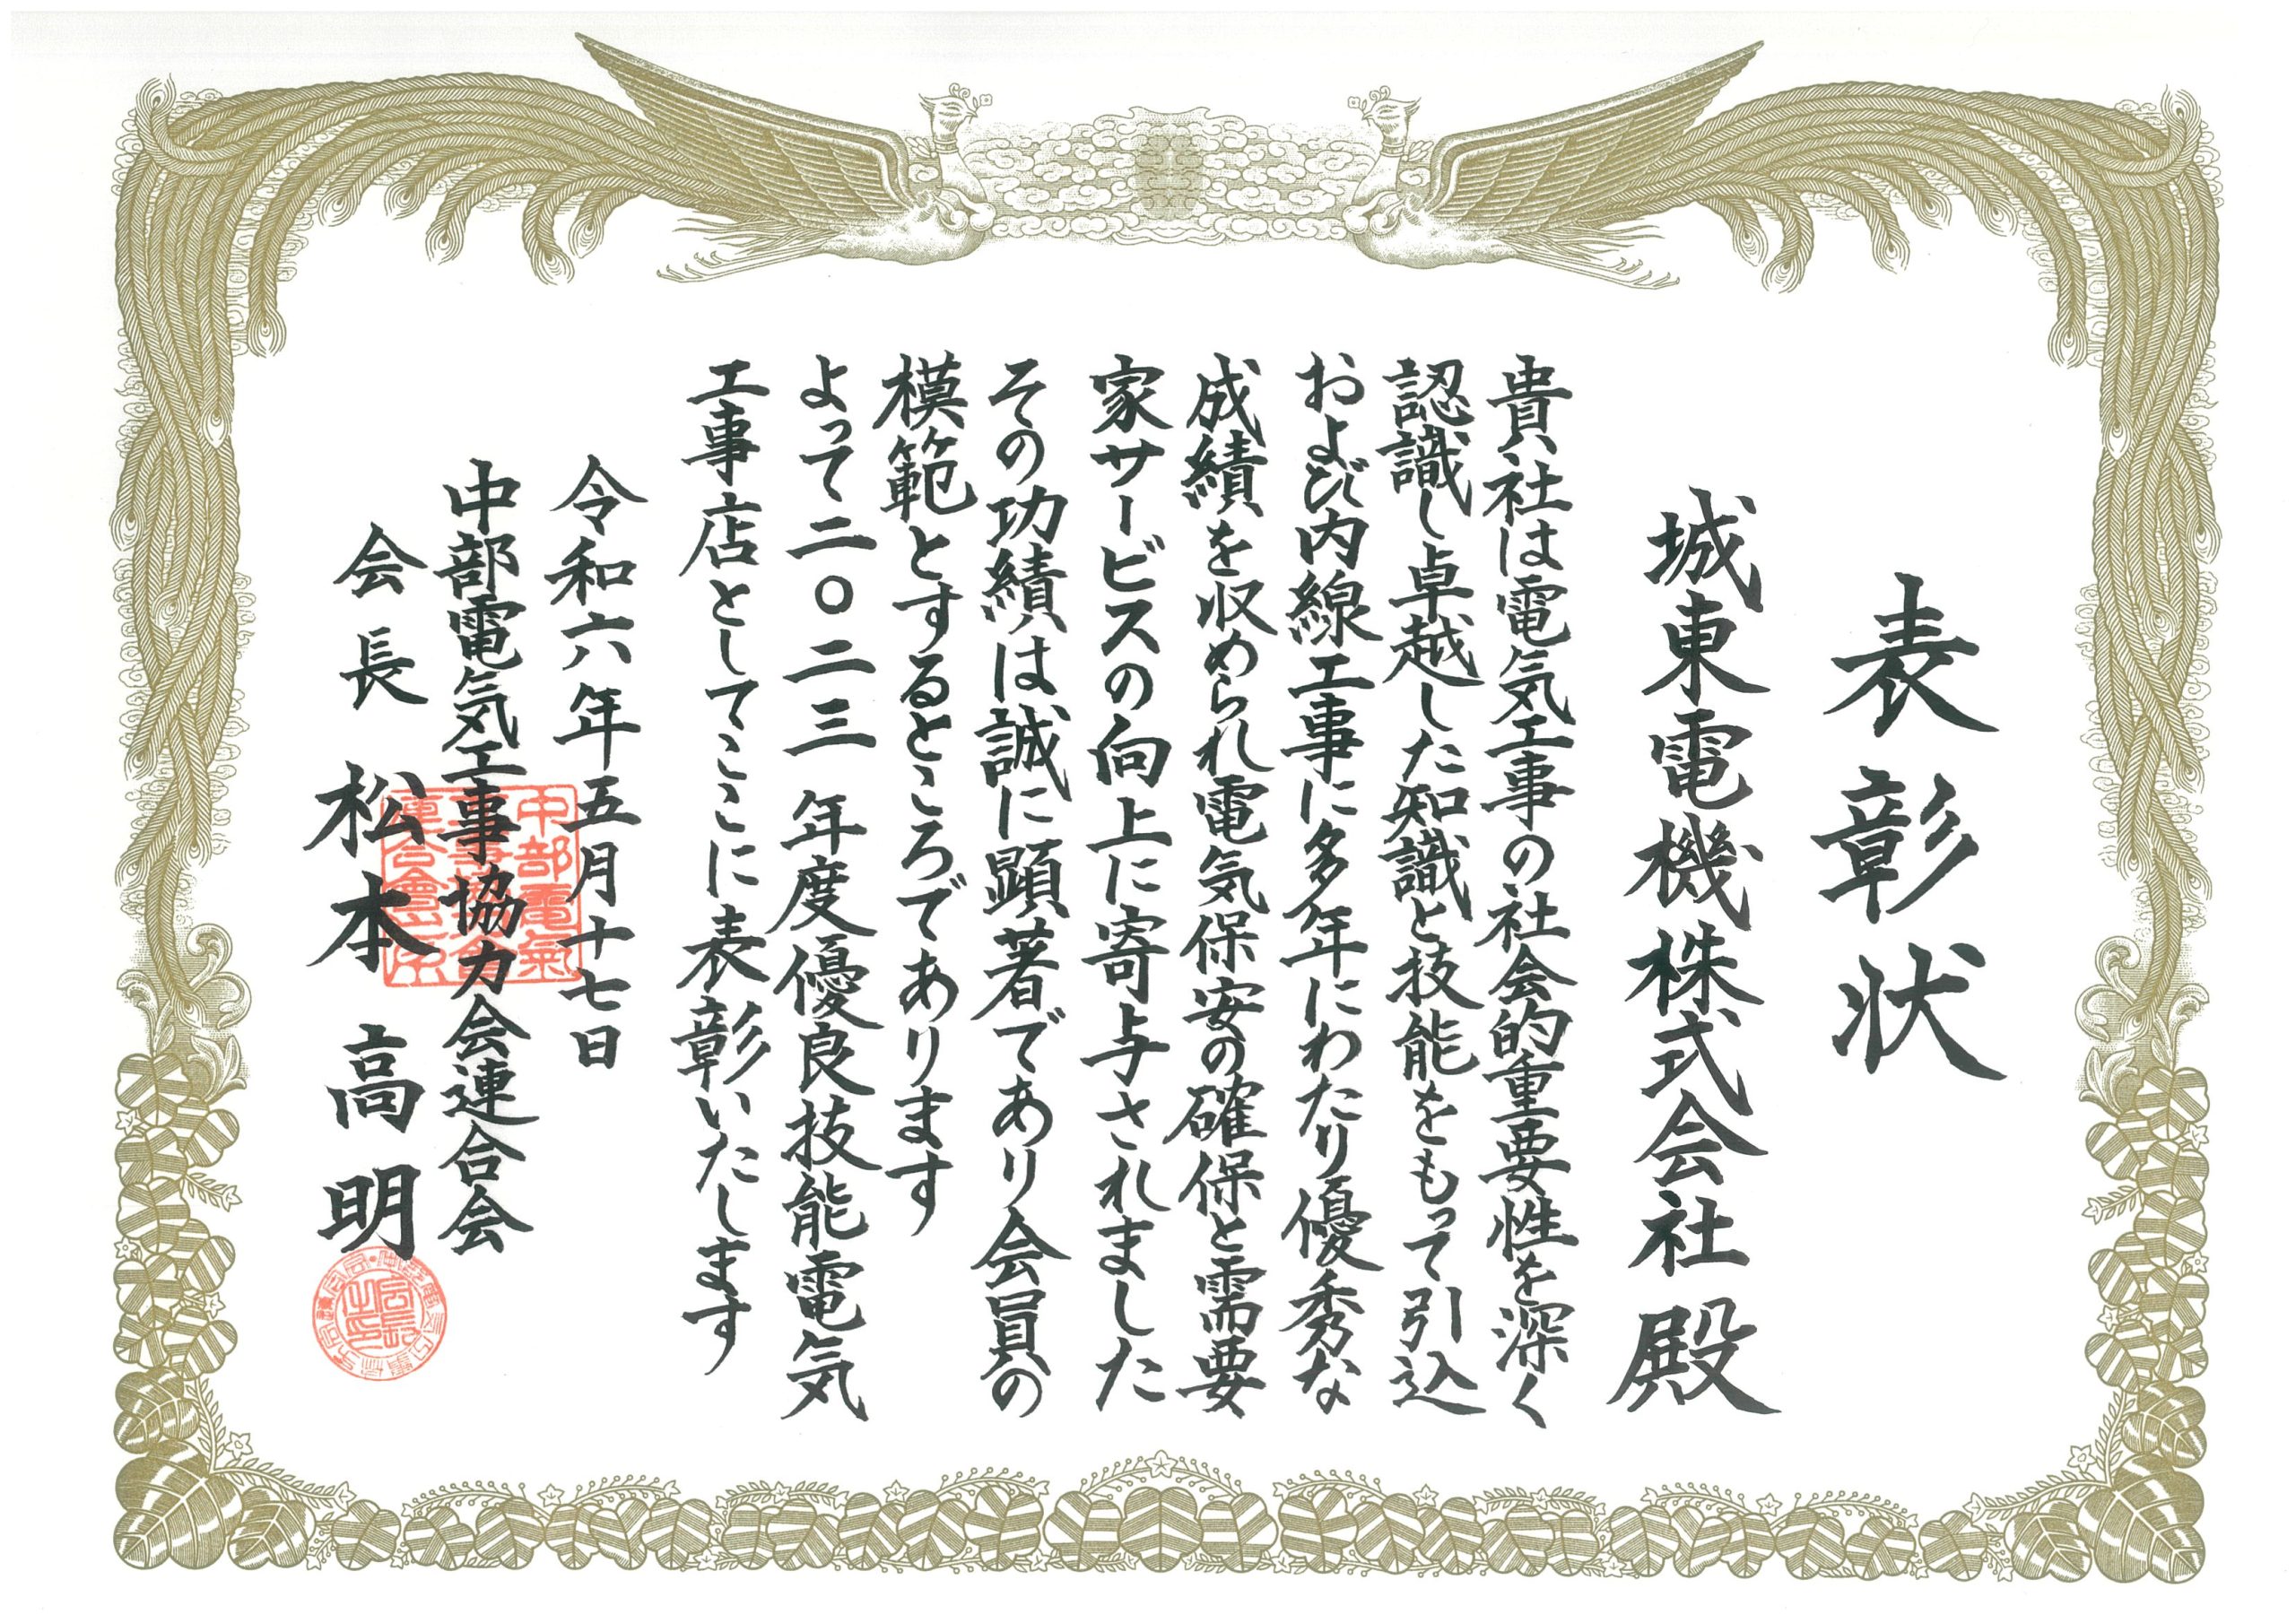 表彰状
城東電機株式会社殿
貴社は電気工事の社会的重要性を深く
認識し卓越した知識と技能をもって引込
および内線工事に多年にわたり優秀な
成績を収められ電気保安の確保と需要
家サービスの向上に寄与されました
その功績は誠に顕著であり会員の
模範とするところであります
よって二〇二三年度優良技能電気
工事店としてここに表彰いたします
令和六年五月十七日
中部電気工事協力会連合会
会長 松本高明